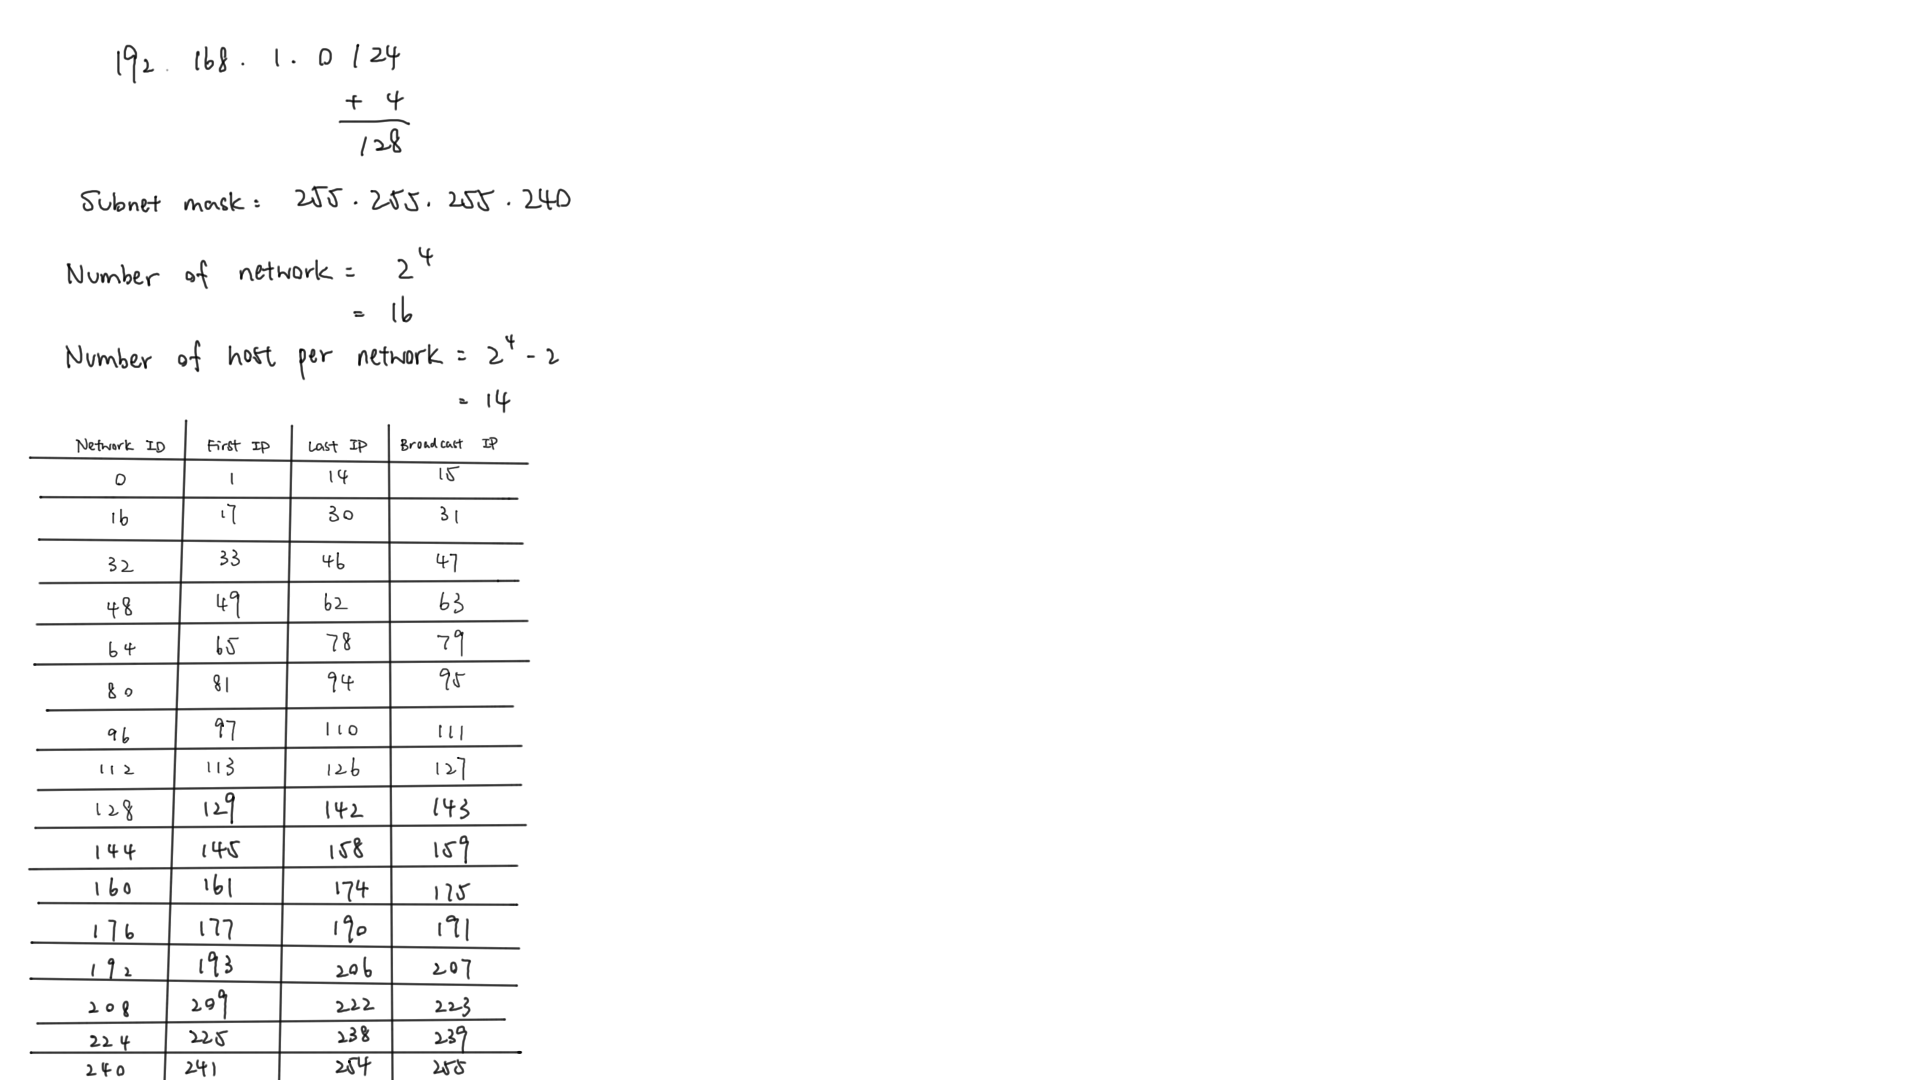 192. 168. 1. 0 /24
+ 4
/28
Subnet mask: 255.255.255.240
Number of network = 2⁴
= 16
Number of host per network = 2⁴ - 2
= 14
Network ID First IP Last IP Broadcast IP
0 1 14 15
16 17 30 31
32 33 46 47
48 49 62 63
64 65 78 79
80 81 94 95
96 97 110 111
112 113 126 127
128 129 142 143
144 145 158 159
160 161 174 175
176 177 190 191
192 193 206 207
208 209 222 223
224 225 238 239
240 241 254 255